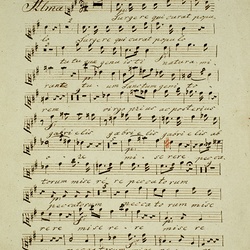 Alma
Surgere qui curat popu
lo Surgere qui curat populo
tu quae genuisti natura mi
rante tu um sanctum genito
rem virgo prius ac posterius
gabrielis gabrielis gabrielis ab
o re mi sere re pecca
torum mise re re peccatorum
peccatorum peccatorum mise
rere mise re re mise re